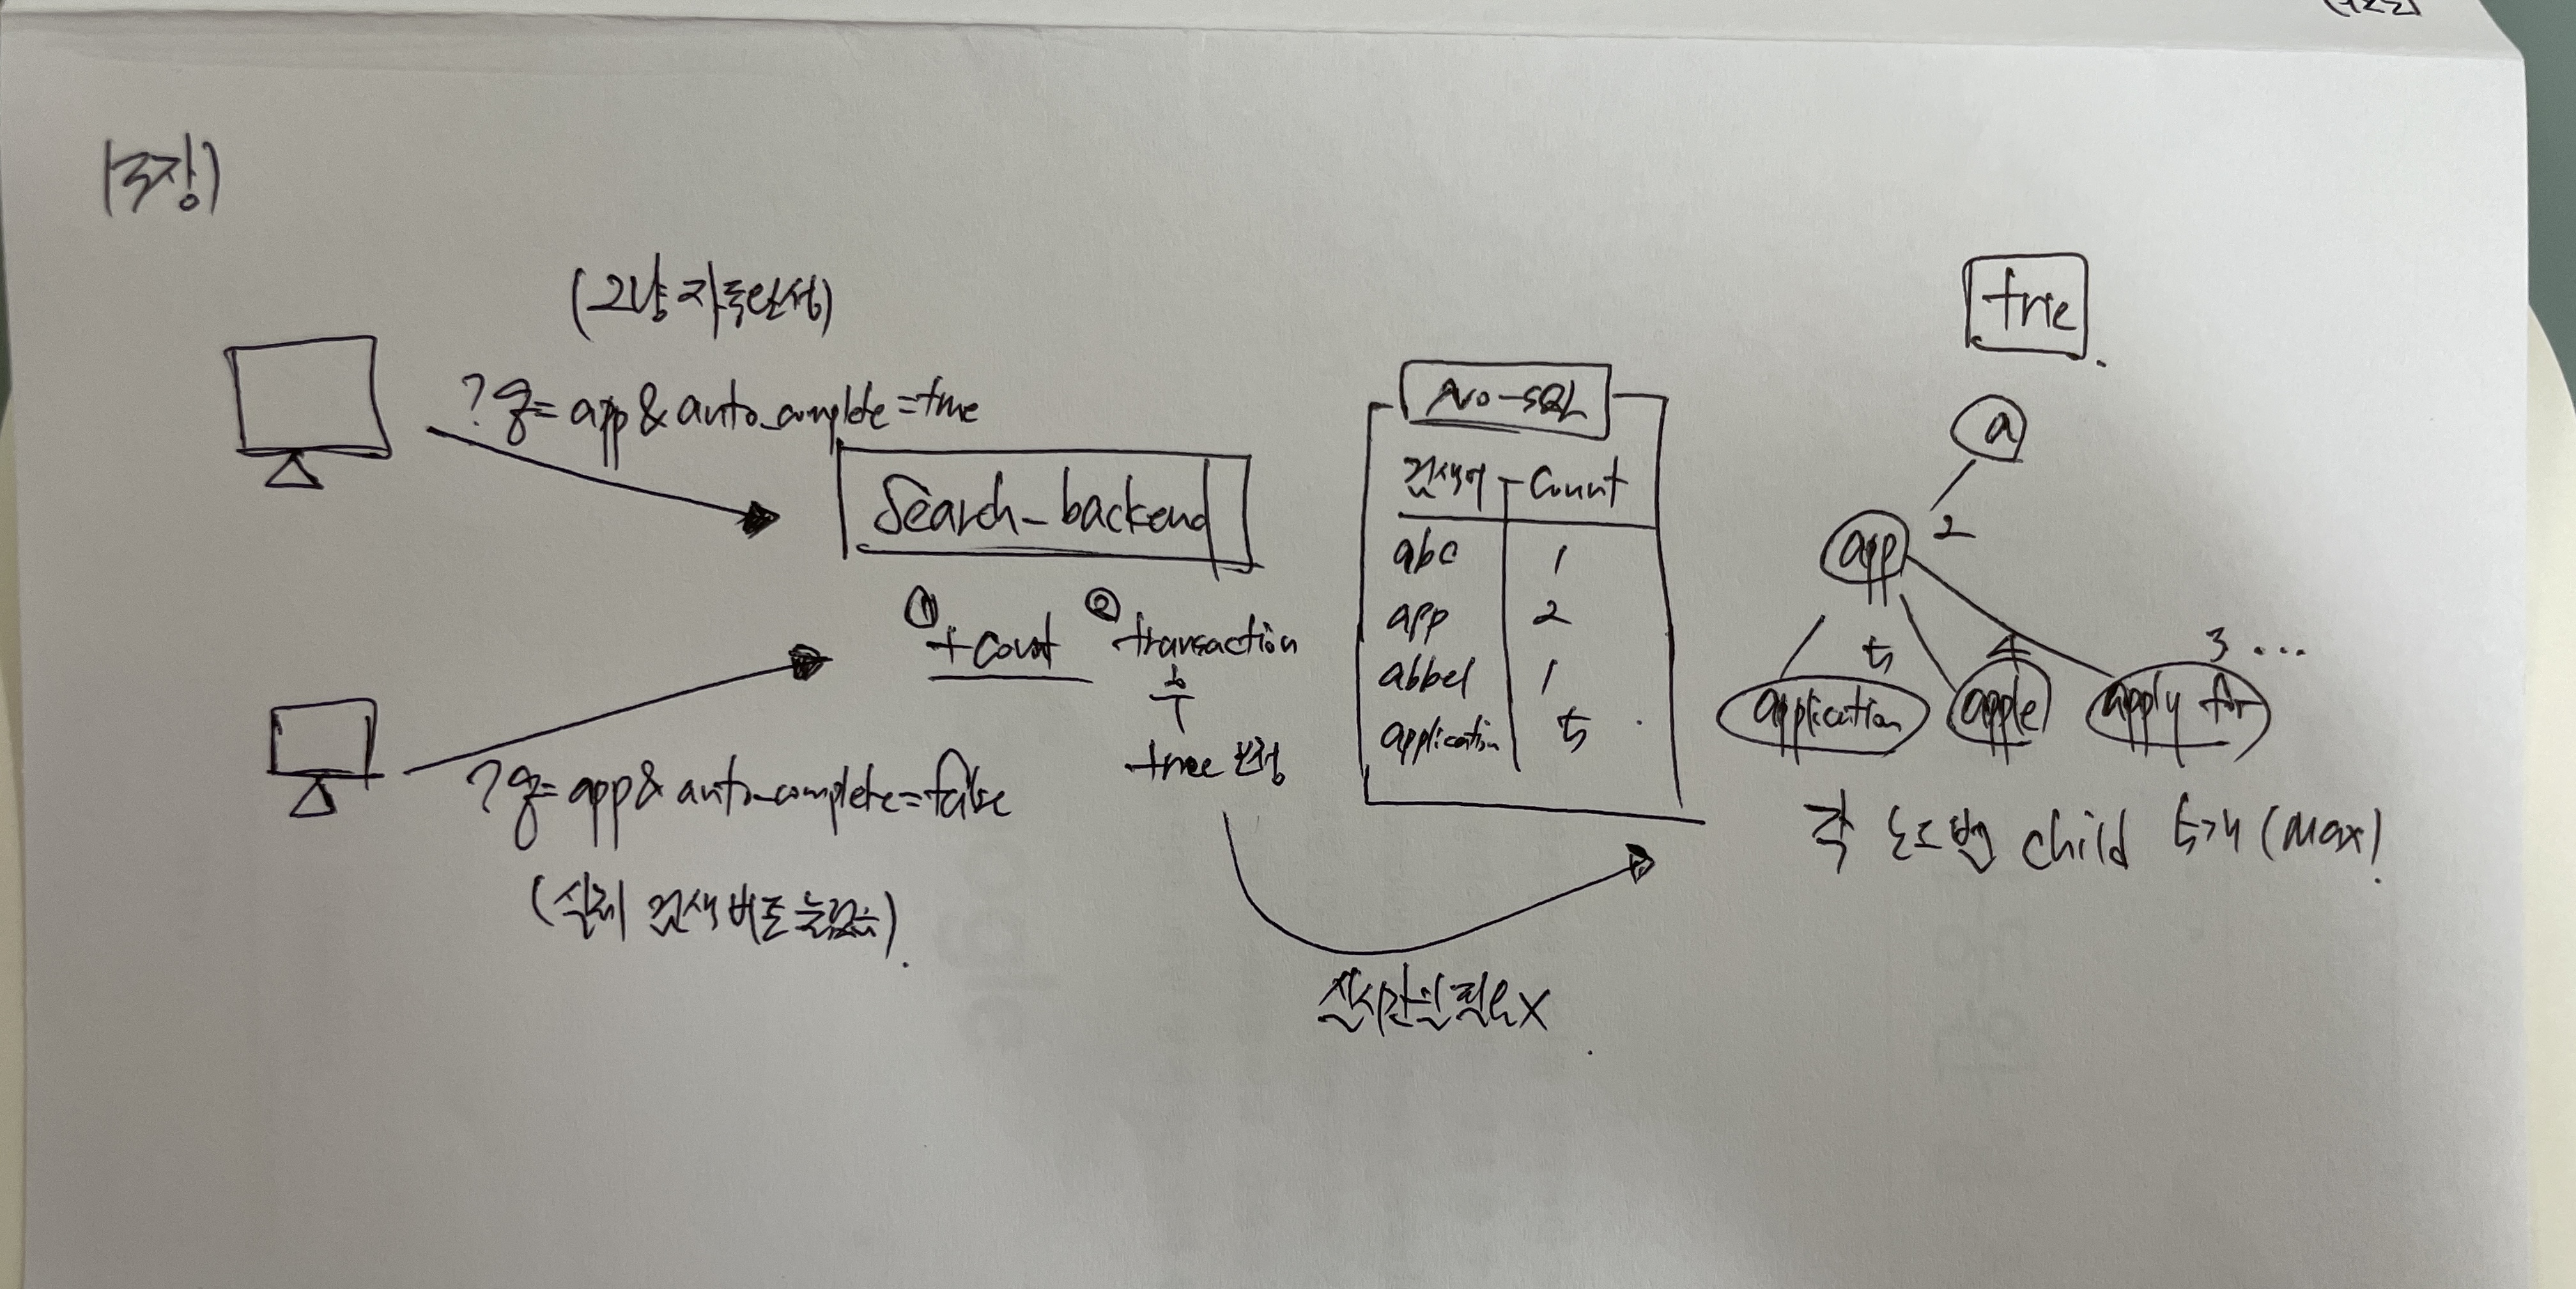 13장)
(그냥 자동완성)
?q=app&auto_complete=true
Search_backend
① + count
② transaction
후
tree 변경
?q=app&auto_complete=false
(실제 검색 버튼 눌렀음).
실시간일 필요X
No-SQL
검색어 count
abc 1
app 2
abbel 1
application 5
trie
a
2
app
5 4 3 ...
application apple apply for
각 노드별 child 5개 (max).